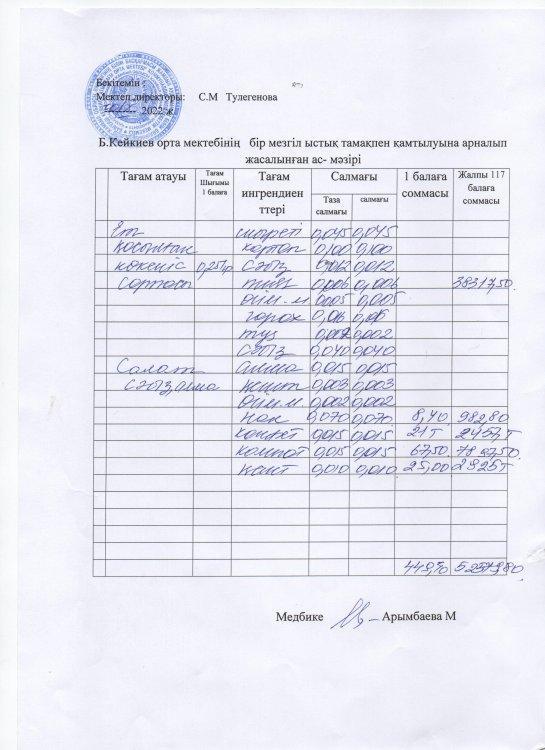 Бекітемін :
Мектеп директоры: С.М Тулегенова
2022 ж
Б.Кейкиев орта мектебінің бір мезгіл ыстық тамақпен қамтылуына арналып
жасалынған ас- мәзірі
Тағам атауы Тағам Шығымы 1 балаға Тағам ингрендиен ттері Салмағы 1 балаға соммасы Жалпы 117 балаға соммасы
Таза салмағы салмағы
Ет 0,045 0,045
қосылған картоп 0,100 0,100
көкөніс 0,25гр Сәбіз 0,012 0,012
Сорпасы пияз 0,006 0,006
өсім.м 0,005 0,005
горох 0,06 0,06
туз 0,002 0,002
Сәбіз 0,040 0,040
Салат алма 0,015 0,015
сәбіз,алма 0,003 0,003
өсім.м. 0,002 0,002
нан 0,070 0,070 8,40 982,80
конфет 0,015 0,015 21т 2457т
компот 0,015 0,015 67,50 7897,50
қант 0,010 0,010 25,00 2925т
Медбике Арымбаева М